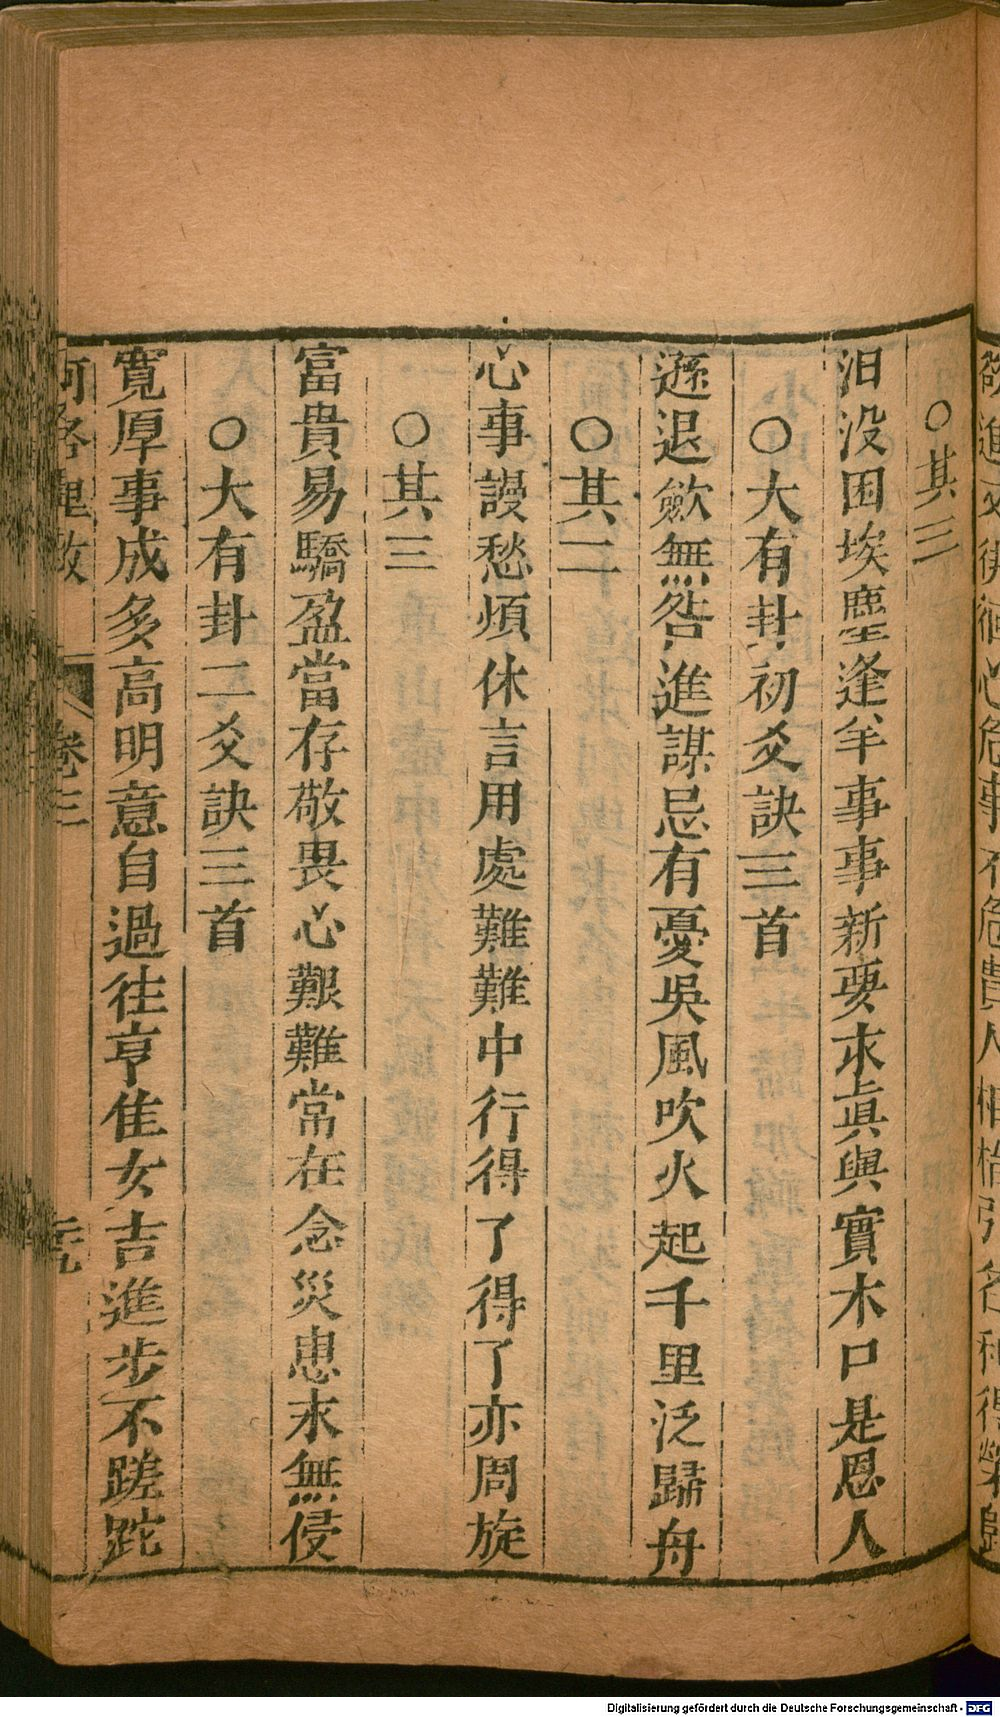 ○其三
汨没困埃塵逢牟事事新要求眞與實木口是恩人
○大有卦初爻訣三首
遜退歛無咎進謀忌有憂吳風吹火起千里泛歸舟
○其二
心事謾愁煩休言用處難難中行得了得了亦周旋
○其三
富貴易驕盈當存敬畏心艱難常在念災患求無侵
○大有卦二爻訣三首
寛厚事成多高明意自過往亨隹女吉進步不蹉跎
河洛理數
卷三
Digitalisierung gefördert durch die Deutsche Forschungsgemeinschaft - DFG